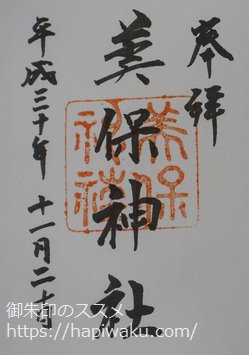 奉拝
美保神社
美保
神社
平成三十年 十一月
御朱印のススメ
https://hapiwaku.com/